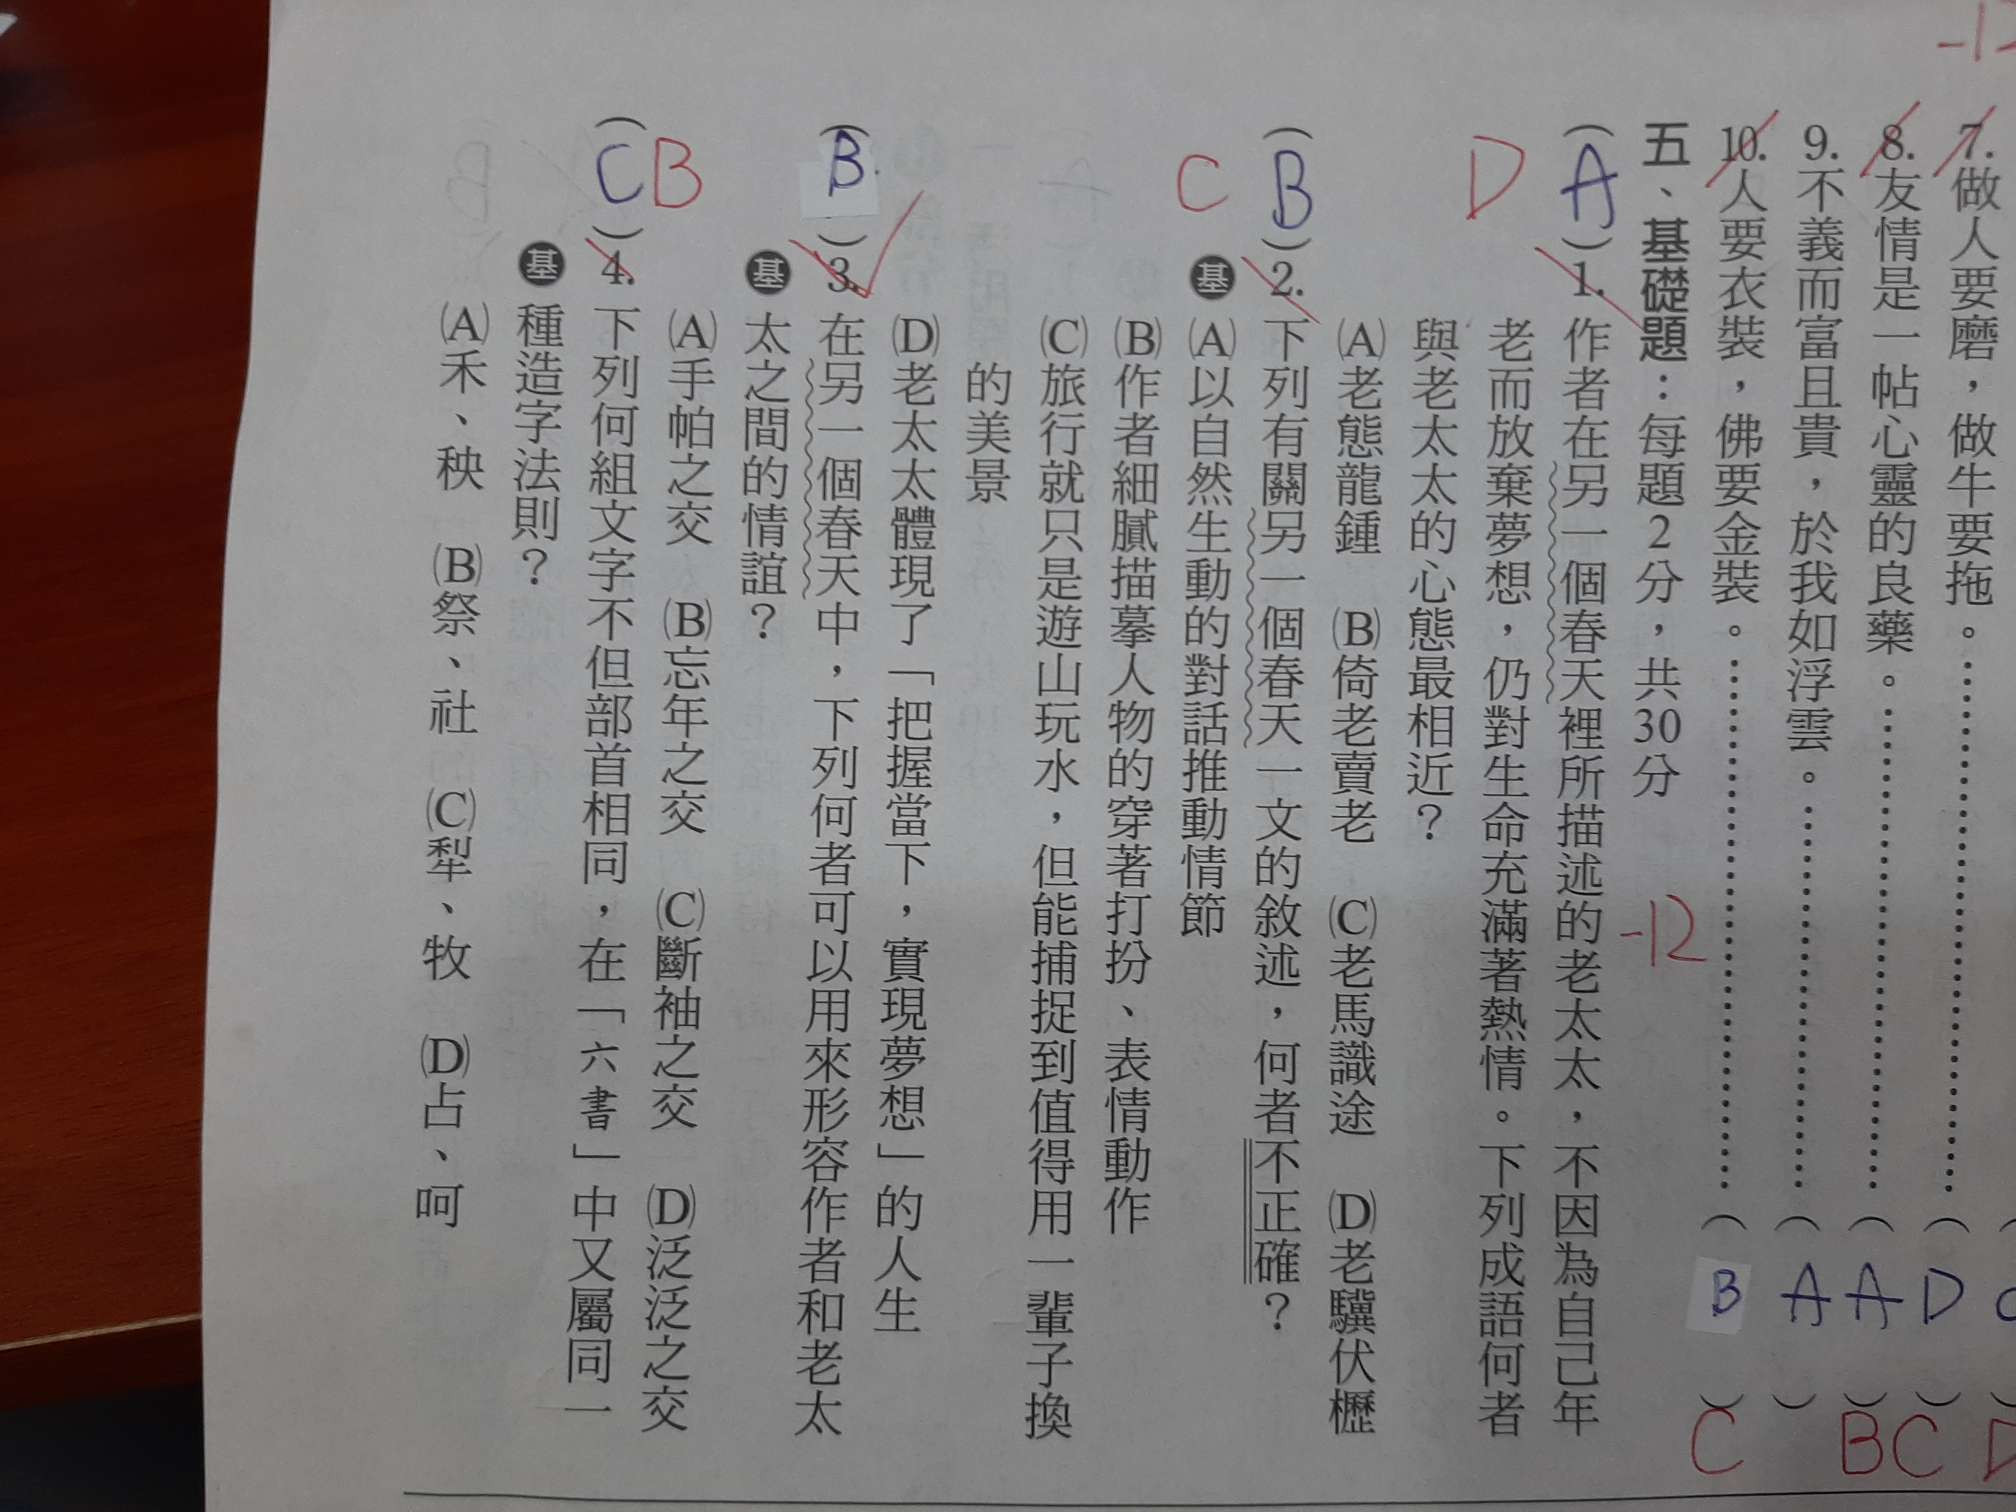 -12
7.做人要磨，做牛要拖。……………………………（D）C
8.友情是一帖心靈的良藥。……………………………（A）B
9.不義而富且貴，於我如浮雲。……………………………（A）
10.人要衣裝，佛要金裝。……………………………（B）C
五、基礎題：每題2分，共30分 -12
（A）1.作者在另一個春天裡所描述的老太太，不因為自己年
D 老而放棄夢想，仍對生命充滿著熱情。下列成語何者
與老太太的心態最相近？
(A)老態龍鍾 (B)倚老賣老 (C)老馬識途 (D)老驥伏櫪
（B）2.下列有關另一個春天一文的敘述，何者不正確？
C 基 (A)以自然生動的對話推動情節
(B)作者細膩描摹人物的穿著打扮、表情動作
(C)旅行就只是遊山玩水，但能捕捉到值得用一輩子換
的美景
(D)老太太體現了「把握當下，實現夢想」的人生
（B）3.在另一個春天中，下列何者可以用來形容作者和老太
基 太之間的情誼？
(A)手帕之交 (B)忘年之交 (C)斷袖之交 (D)泛泛之交
（C）B 4.下列何組文字不但部首相同，在「六書」中又屬同一
基 種造字法則？
(A)禾、秧 (B)祭、社 (C)犁、牧 (D)占、呵